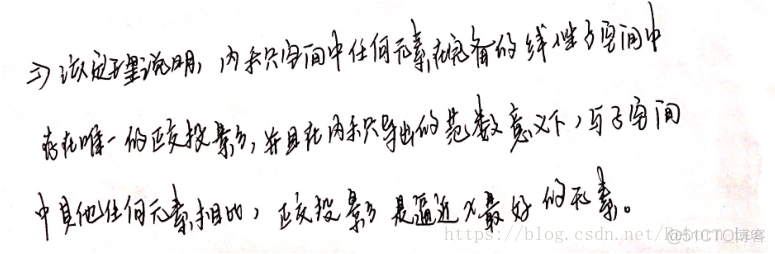 ⇒ 该定理说明，内积空间中任何元素在完备的线性子空间中
存在唯一的正交投影，并且在内积导出的范数意义下，与子空间
中其他任何元素相比，正交投影是逼近x最好的元素。
https://blog.csdn.net/
@51CTO博客